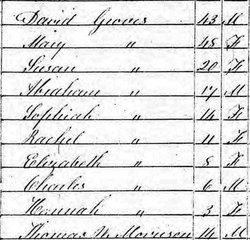 David Groves 43 M
Mary " 45 F
Susan " 20 F
Abraham " 17 M
Sophiah " 14 F
Rachel " 11 F
Elizabeth " 8 F
Charles " 6 M
Hannah " 3 F
Thomas N. Morrison 14 M